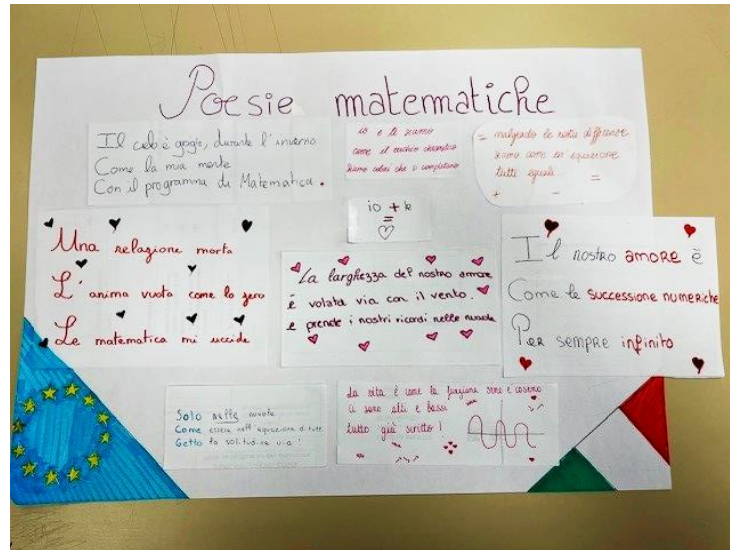 Poesie matematiche
Il cielo è grigio, durante l'inverno
Come la mia mente
Con il programma di Matematica.
io e te siamo
come il cerchio cromatico
siamo colori che si completano
= malgrado le nostre differenze
siamo come un'equazione
tutti eguali.
+ - =
io + te
=
Una relazione morta
L'anima vuota come lo zero
La matematica mi uccide
La larghezza del nostro amore
è volata via con il vento.
e prende i nostri ricordi nelle nuvole
Il nostro amore è
Come le successione numeriche
Per sempre infinito
Solo nelle nuvole
Come essere nell'equazione di
Getto la solitudine via!
La vita è come la funzione seno e coseno
Ci sono alti e bassi
tutto già scritto!